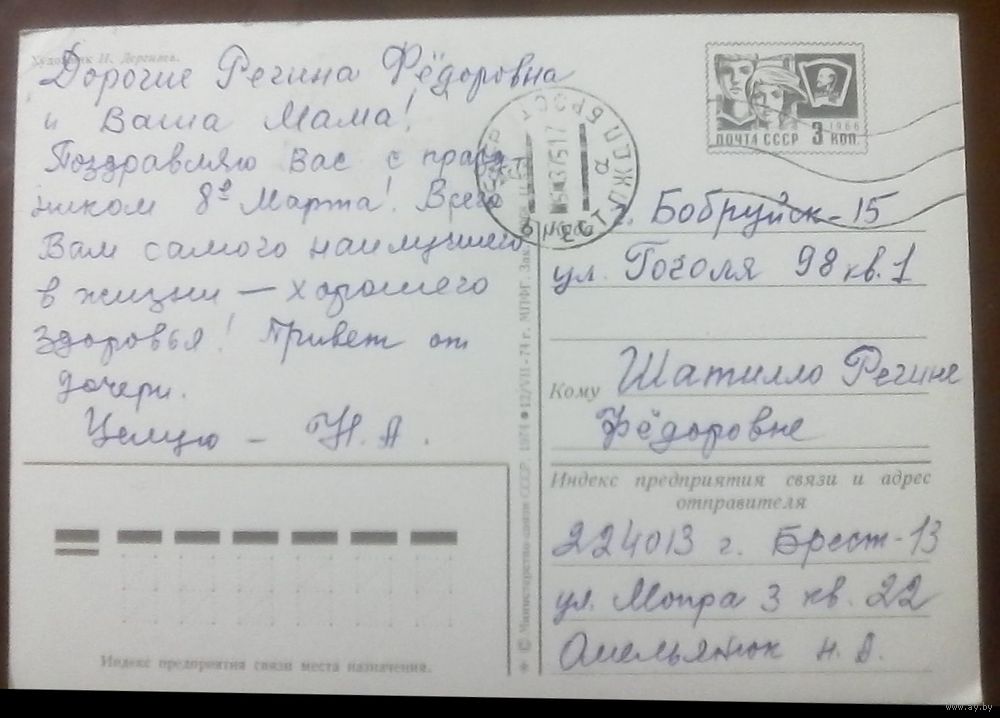 Художник Н. Дергилев.
Дорогие Регина Фёдоровна
и Ваша Мама!
Поздравляю Вас с празд
ником 8е Марта! Всего
Вам самого наилучшего
в жизни — хорошего
здоровья! Привет от
дочери.
Целую — Н. А.
Индекс предприятия связи места назначения.
© Министерство связи СССР. 1974 12/VII-74 г. МПФГ. Зак.
ПОЧТА СССР 3 КОП.
1966
г. Бобруйск-15
ул. Гоголя 98 кв. 1
Кому Шатилло Регине
Фёдоровне
Индекс предприятия связи и адрес
отправителя
224013 г. Брест-13
ул. Мопра 3 кв. 22
Омельянюк Н. А.
www.ay.by